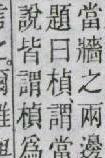 當牆之兩邊
題曰楨謂當
說皆謂楨爲